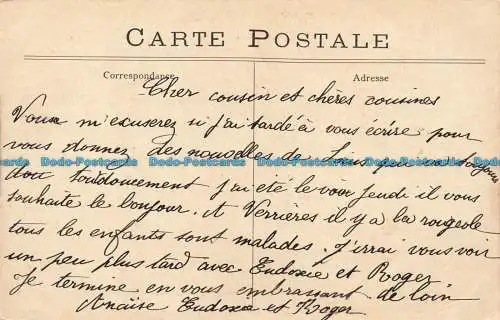 CARTE POSTALE
Correspondance
Adresse
Cher cousin et chères cousines
Vous m'excuserez si j'ai tardé à vous écrire pour
vous donnez des nouvelles de qui va toujours
Dodo-Postcards Dodo-Postcards Dodo-Postcards Dodo-Postcards Dodo-Postcards
doucement j'ai été le voir jeudi il vous
souhaite le bonjour. A Verrières il y a la rougeole
tous les enfants sont malades. J'irrai vous voir
un peu plus tard avec Eudoxie et Roger
Je termine en vous embrassant de loin
Anaïse Eudoxie et Roger